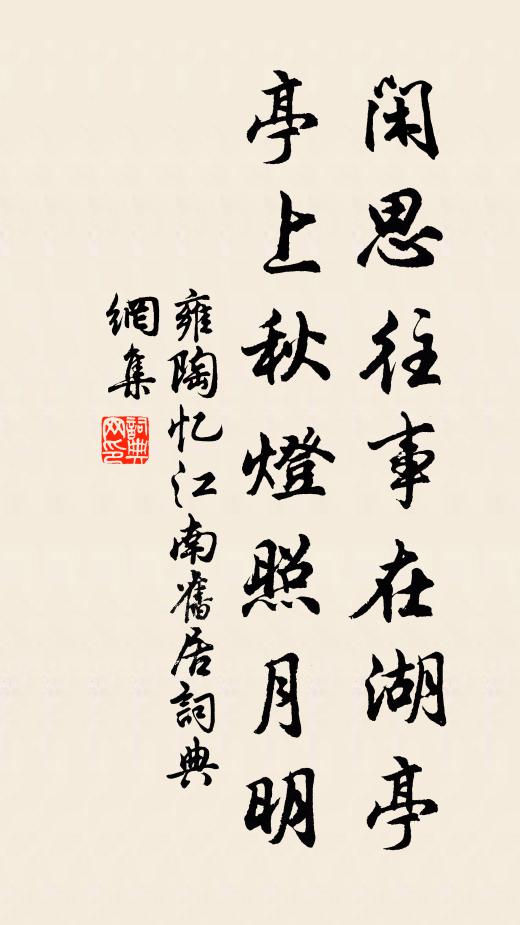 闲思往事在湖亭
亭上秋燈照月明
雍陶忆江南舊居詞典
網集
詞典
网印